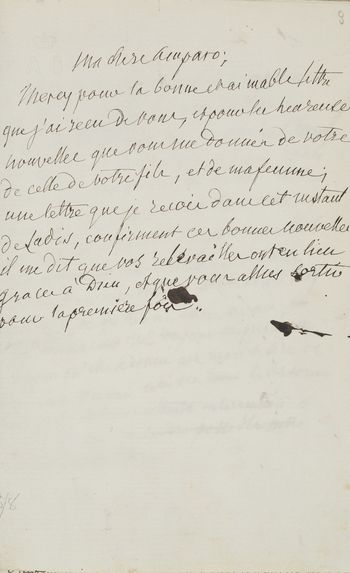 Ma chere Amparo;
Mercy pour la bonne et aimable lettre
que j'ai recu de vous, et pour les heureuse
nouvelles que vous me donnée de votre
de celle de votre fils, et de ma femme,
une lettre que je recois dans cet instant
de Ladis, confirment ces bonne nouvelles
il me dit que vos relevailles ont eu lieu
graces à Dieu, et que vous alliés sortir
pour la premiere fois.